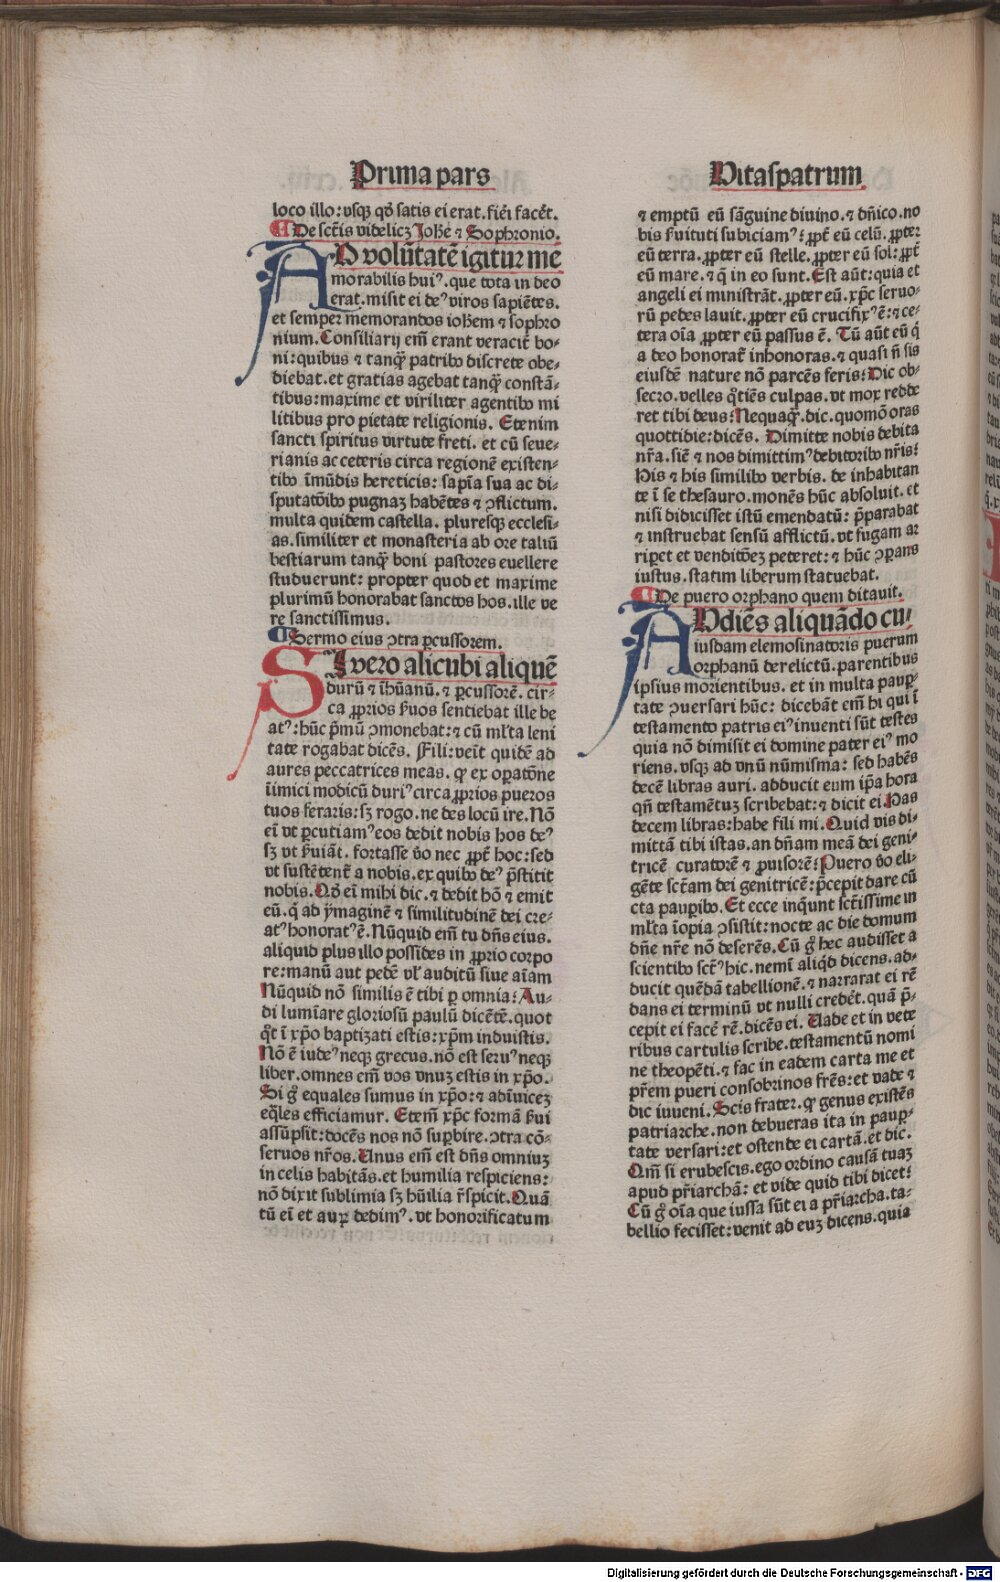 Prima pars
loco illo: vsqꝫ qđ satis ei erat. fieri facēt.
De sct̄is videlicꝫ Joħe ⁊ Sophronio.
AD volūtatē igitur me
morabilis huiꝰ. que tota in deo
erat. misit ei deꝰ viros sapiētes.
et semper memorandos ioħem ⁊ sophro
nium. Consiliarij em̄ erant veracit̄ bo-
ni: quibus ⁊ tanqꝫ̄ patribꝰ discrete obe-
diebat. et gratias agebat tanqꝫ̄ constā-
tibus: maxime et viriliter agentibꝰ mi
litibus pro pietate religionis. Etenim
sancti spiritus virtute freti. et cū seue-
rianis ac ceteris circa regionē existen-
tibꝰ īmūdis hereticis: sapīa sua ac di-
sputatōibꝰ pugnaꝫ habētes ⁊ ꝯflictum.
multa quidem castella. pluresqꝫ ecclesi-
as. similiter et monasteria ab ore taliū
bestiarum tanqꝫ̄ boni pastores euellere
studuerunt: propter quod et maxime
plurimū honorabat sanctos hos. ille ve
re sanctissimus.
Sermo eius ꝯtra ꝑcussorem.
SI vero alicubi aliquē
durū ⁊ īhūanū. ⁊ ꝑcussorē. cir-
ca ꝓprios ẜuos sentiebat ille be
atꝰ: hūc pꝰmū ꝯmonebat: ⁊ cū ml̄ta leni
tate rogabat dicēs. Fili: veīt quidē ad
aures peccatrices meas. qꝙ ex oꝑatōne
īimici modicū duriꝰ circa ꝓprios pueros
tuos feraris: sꝫ rogo. ne des locū ire. Nō
eī vt ꝑcutiamꝰ eos dedit nobis hos deꝰ
sꝫ vt ẜuiāt. fortasse v̄o nec ꝓpt̄ hoc: sed
vt sustētent̄ a nobis. ex quibꝰ deꝰ p̄stitit
nobis. Qđ eī mihi dic. ⁊ dedit hō ⁊ emit
eū. qͥ ad ymaginē ⁊ similitudinē dei cre-
atꝰ honoratꝰ ē. Nūquid em̄ tu dn̄s eius.
aliquid plus illo possides in ꝓprio corpo
re: manū aut pedē vl̓ auditū siue aīam
Nūquid nō similis ē tibi ꝑ omnia? Au-
di lumīare gloriosū paulū dicētē. quot
qͦt ī xp̄o baptizati estis: xp̄m induistis.
Nō ē iudeꝰ neqꝫ grecus. nō est seruꝰ neqꝫ
liber. omnes em̄ vos vnuꝫ estis in xp̄o.
Si gͦ equales sumus in xp̄o: ⁊ adīuiceꝫ
eq̄les efficiamur. Etem̄ xp̄c formā ẜui
assūpsit: docēs nos nō suꝑbire. ꝯtra cō-
seruos nr̄os. Unus em̄ est dn̄s omniuꝫ
in celis habitās. et humilia respiciens:
nō dixit sublimia sꝫ hūilia r̄spicit. Quā
tū eī et auꝝ dedimꝰ. vt honorificatum
Vitaspatrum
⁊ emptū eū sāguine diuino. ⁊ dn̄ico. no
bis ẜuituti subiciamꝰ? ꝓpt̄ eū celū. ꝓpter
eū terra. ꝓpter eū stelle. ꝓpter eū sol: ꝓpt̄
eū mare. ⁊ q̄ in eo sunt. Est aūt: quia et
angeli ei ministrāt. ꝓpter eū. xp̄c seruo-
rū pedes lauit. ꝓpter eū crucifixꝰ ē: ⁊ ce-
tera oīa ꝓpter eū passus ē. Tū aūt eū qͥ
a deo honorat̄ inhonoras. ⁊ quasi n̄ sis
eiusdē nature nō parcēs feris? Dic ob-
secro. velles qͦtiēs culpas. vt mox redde
ret tibi deus? Nequaqꝫ̄. dic. quomō oras
quottidie: dicēs. Dimitte nobis debita
nr̄a. siē ⁊ nos dimittimꝰ debitoribꝰ nr̄is?
His ⁊ his similibꝰ verbis. de inhabitan
te ī se thesauro. monēs hūc absoluit. et
nisi didicisset istū emendatū: p̄parabat
⁊ instruebat sensū afflictū. vt fugam ar
riꝑet et venditōeꝫ peteret: ⁊ hūc ꝯparans
iustus. statim liberum statuebat.
De puero orphano quem ditauit.
AUdiēs aliquādo cu-
iusdam elemosinatoris puerum
orphanū derelictū. parentibus
ipsius morientibus. et in multa pauꝑ-
tate ꝯuersari hūc: dicebāt em̄ hi qui ī
testamento patris eiꝰ inuenti sūt testes
quia nō dimisit ei domine pater eiꝰ mo
riens. vsqꝫ ad vnū nūmisma: sed habēs
decē libras auri. adducit eum ip̄a hora
qn̄ testamētuꝫ scribebat: ⁊ dicit ei. Has
decem libras: habe fili mi. Quid vis di-
mittā tibi istas. an dn̄am meā dei geni-
tricē curatorē ⁊ ꝓuisorē? Puero v̄o eli-
gēte sct̄am dei genitricē: p̄cepit dare cū
cta pauꝑibꝰ. Et ecce inqͥunt sct̄issime in
ml̄ta īopia ꝯsistit: nocte ac die domum
dn̄e nr̄e nō deserēs. Cū gͦ hec audisset a
scientibꝰ sct̄ꝰ hic. nemī aliqͥd dicens. ad-
ducit quēdā tabellionē. ⁊ narrarat ei rē
dans ei terminū vt nulli credēt̄. quā p̄-
cepit ei facē rē. dicēs ei. Uade et in vete
ribus cartulis scribe. testamentū nomi
ne theopēti. ⁊ fac in eadem carta me et
pr̄em pueri consobrinos fr̄es: et vade ⁊
dic iuueni. Scis frater. qꝙ genus existēs
patriarche. non debueras ita in pauꝑ-
tate versari: et ostende ei cartā. et dic.
Qm̄ si erubescis. ego ordino causā tuaꝫ
apud pr̄iarchā: et vide quid tibi dicet?
Cū gͦ oīa que iussa sūt ei a pr̄iarcha. ta-
bellio fecisset: venit ad euꝫ dicens. quia
Digitalisierung gefördert durch die Deutsche Forschungsgemeinschaft - DFG